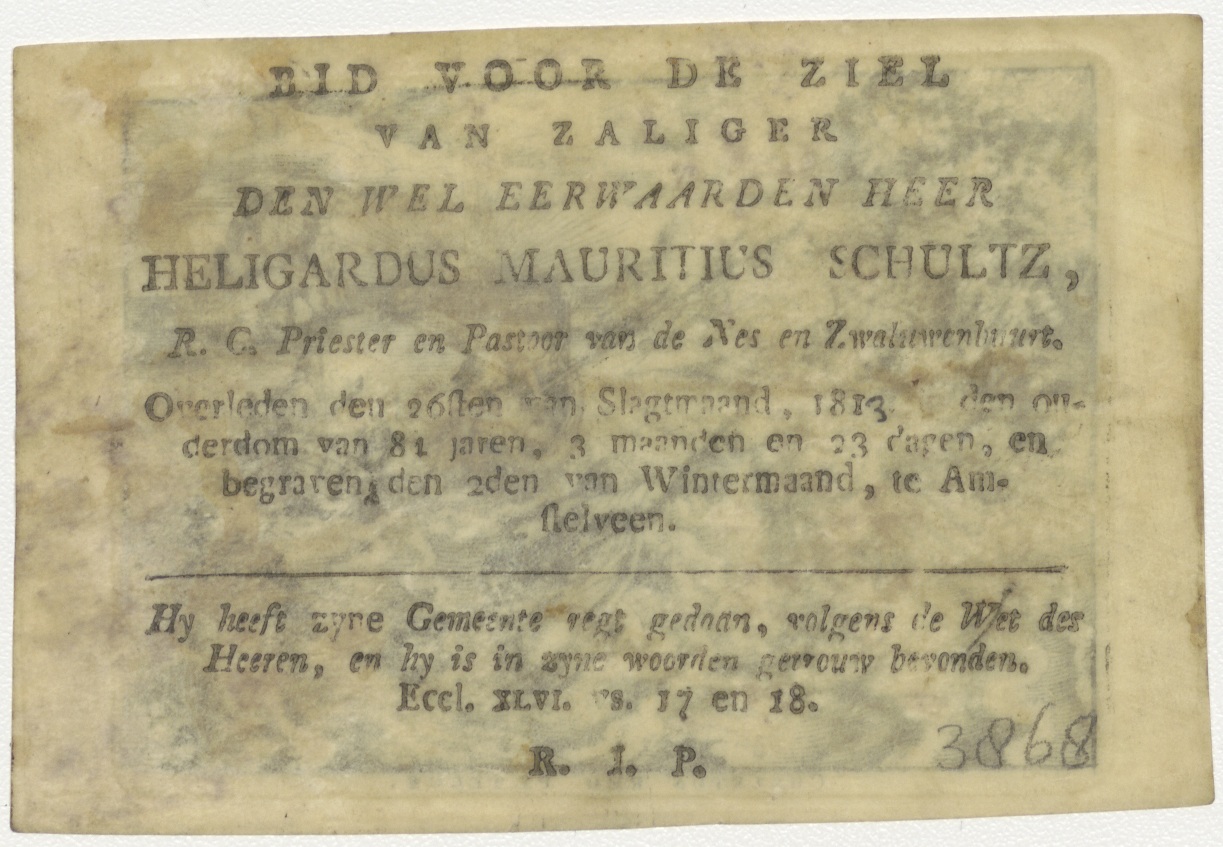 BID VOOR DE ZIEL
VAN ZALIGER
DEN WEL EERWAARDEN HEER
HELIGARDUS MAURITIUS SCHULTZ,
R. C. Priester en Pastoor van de Nes en Zwaluwenbuurt.
Overleden den 26ſten van Slagtmaand, 1813. den ou-
derdom van 81 jaren, 3 maanden en 23 dagen, en
begraven, den 2den van Wintermaand, te Am-
ſtelveen.
Hy heeft zyne Gemeente regt gedaan, volgens de Wet des
Heeren, en hy is in zyne woorden getrouw bevonden.
Eccl. XLVI. vs. 17 en 18.
R. I. P.
3868